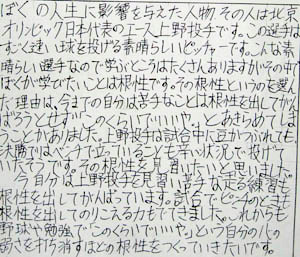 ぼくの人生に影響を与えた人物 その人は北京
オリンピック日本代表のエース上野投手です。この選手は
すごく速い球を投げる素晴らしいピッチャーです。こんな素
晴らしい選手なので学ぶところはたくさんありますがその中で
ぼくが学んだことは根性です。その根性というのを選ん
だ理由は、今までの自分は苦手なことは根性を出してがん
ばろうとせず"このくらいでいいや。とあきらめてしま
うことがありました。上野投手は試合中に豆がつぶれても、
決勝ではベンチで立っていることも辛い状況で投げて
いたそうです。その根性を見習いたいと思いました。
今自分は上野投手を見習い苦手な走る練習も
根性を出してがんばっています。試合でピンチのときも
根性を出してのりこえる力もでてきました。これからも
野球や勉強で「このくらいでいいや」という自分の心の
弱さを打ち消すほどの根性をつくっていきたいです。